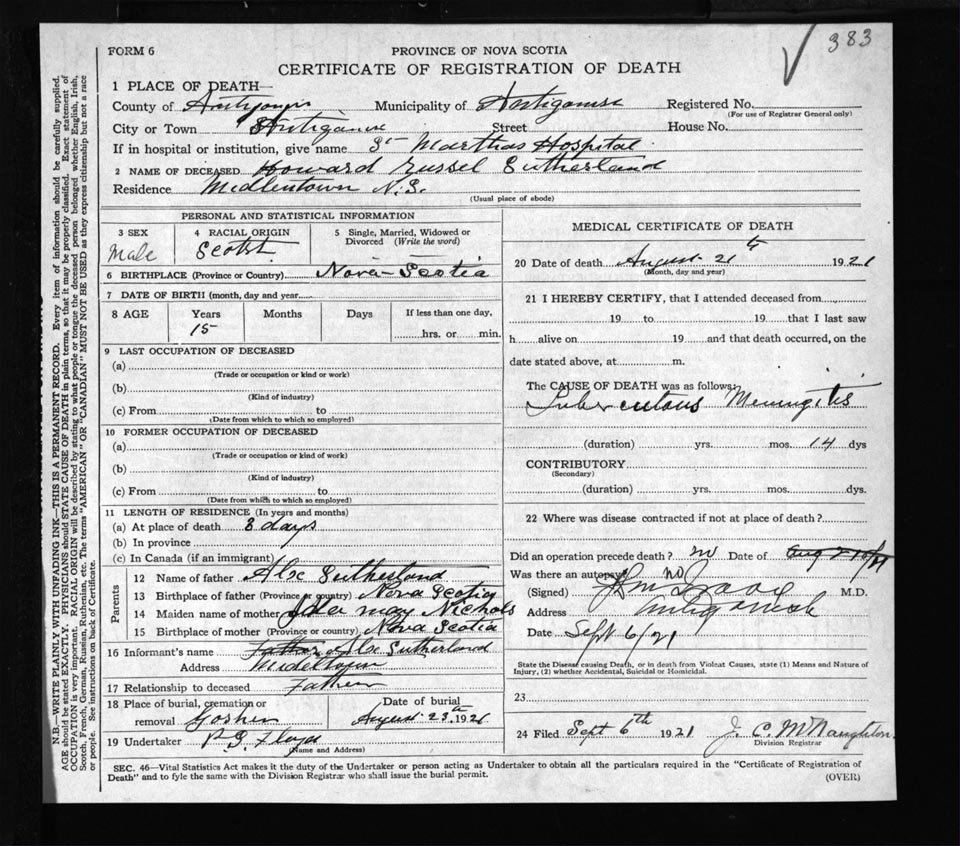 383
FORM 6
PROVINCE OF NOVA SCOTIA
CERTIFICATE OF REGISTRATION OF DEATH
1 PLACE OF DEATH—
County of Municipality of Registered No.
(For use of Registrar General only)
City or Town Street House No.
If in hospital or institution, give name St Marthas Hospital
2 NAME OF DECEASED Howard Russel Sutherland
Residence N.S.
(Usual place of abode)
PERSONAL AND STATISTICAL INFORMATION
3 SEX 4 RACIAL ORIGIN 5 Single, Married, Widowed or Divorced (Write the word)
Male Scotch
6 BIRTHPLACE (Province or Country) Nova-Scotia
7 DATE OF BIRTH (month, day and year
8 AGE Years Months Days If less than one day,
15 hrs. or min.
9 LAST OCCUPATION OF DECEASED
(a)
(Trade or occupation or kind or work)
(b)
(Kind of industry)
(c) From to
(Date from which to which so employed)
10 FORMER OCCUPATION OF DECEASED
(a)
(Trade or occupation or kind of work)
(b)
(Kind of industry)
(c) From to
(Date from which to which so employed)
11 LENGTH OF RESIDENCE (In years and months)
(a) At place of death 3 days
(b) In province
(c) In Canada (if an immigrant)
Parents
12 Name of father Alex Sutherland
13 Birthplace of father (Province or country) Nova Scotia
14 Maiden name of mother may Nichols
15 Birthplace of mother (Province or country) Nova Scotia
16 Informant's name Father Alex Sutherland
Address
17 Relationship to deceased Father
18 Place of burial, cremation or Date of burial
removal Goshen August 23th 1921
19 Undertaker P.G. Floyd
(Name and Address)
MEDICAL CERTIFICATE OF DEATH
20 Date of death August 21 1921
(Month, day and year)
21 I HEREBY CERTIFY, that I attended deceased from
19 to 19 that I last saw
h alive on 19 and that death occurred, on the
date stated above, at m.
The CAUSE OF DEATH was as follows:
Meningitis
(duration) yrs. mos. 14 dys
CONTRIBUTORY
(Secondary)
(duration) yrs. mos. dys.
22 Where was disease contracted if not at place of death?
Did an operation precede death? no Date of
Was there an autopsy no
(Signed) M.D.
Address
Date Sept 6/21
State the Disease causing Death, or in death from Violent Causes, state (1) Means and Nature of
Injury, (2) whether Accidental, Suicidal or Homicidal.
23
24 Filed Sept 6th 1921 J. C. McNaughton
Division Registrar
SEC. 46—Vital Statistics Act makes it the duty of the Undertaker or person acting as Undertaker to obtain all the particulars required in the "Certificate of Registration of
Death" and to fyle the same with the Division Registrar who shall issue the burial permit. (OVER)
N.B.—WRITE PLAINLY WITH UNFADING INK—THIS IS A PERMANENT RECORD. Every item of information should be carefully supplied.
AGE should be stated EXACTLY. PHYSICIANS should STATE CAUSE OF DEATH in plain terms, so that it may be properly classified. Exact statement of
OCCUPATION is very important. RACIAL ORIGIN will be described by stating to what people or tongue the deceased person belonged whether English, Irish,
Scotch, French, German, Russian, Ruthenian, etc. The terms "AMERICAN" OR "CANADIAN" MUST NOT BE USED as they express citizenship but not a race
or people. See instructions on back of Certificate.